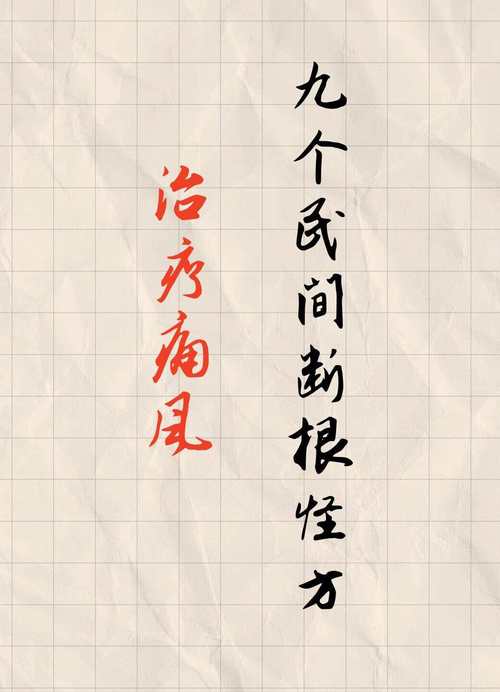 九个民间断根怪方
治疗痛风